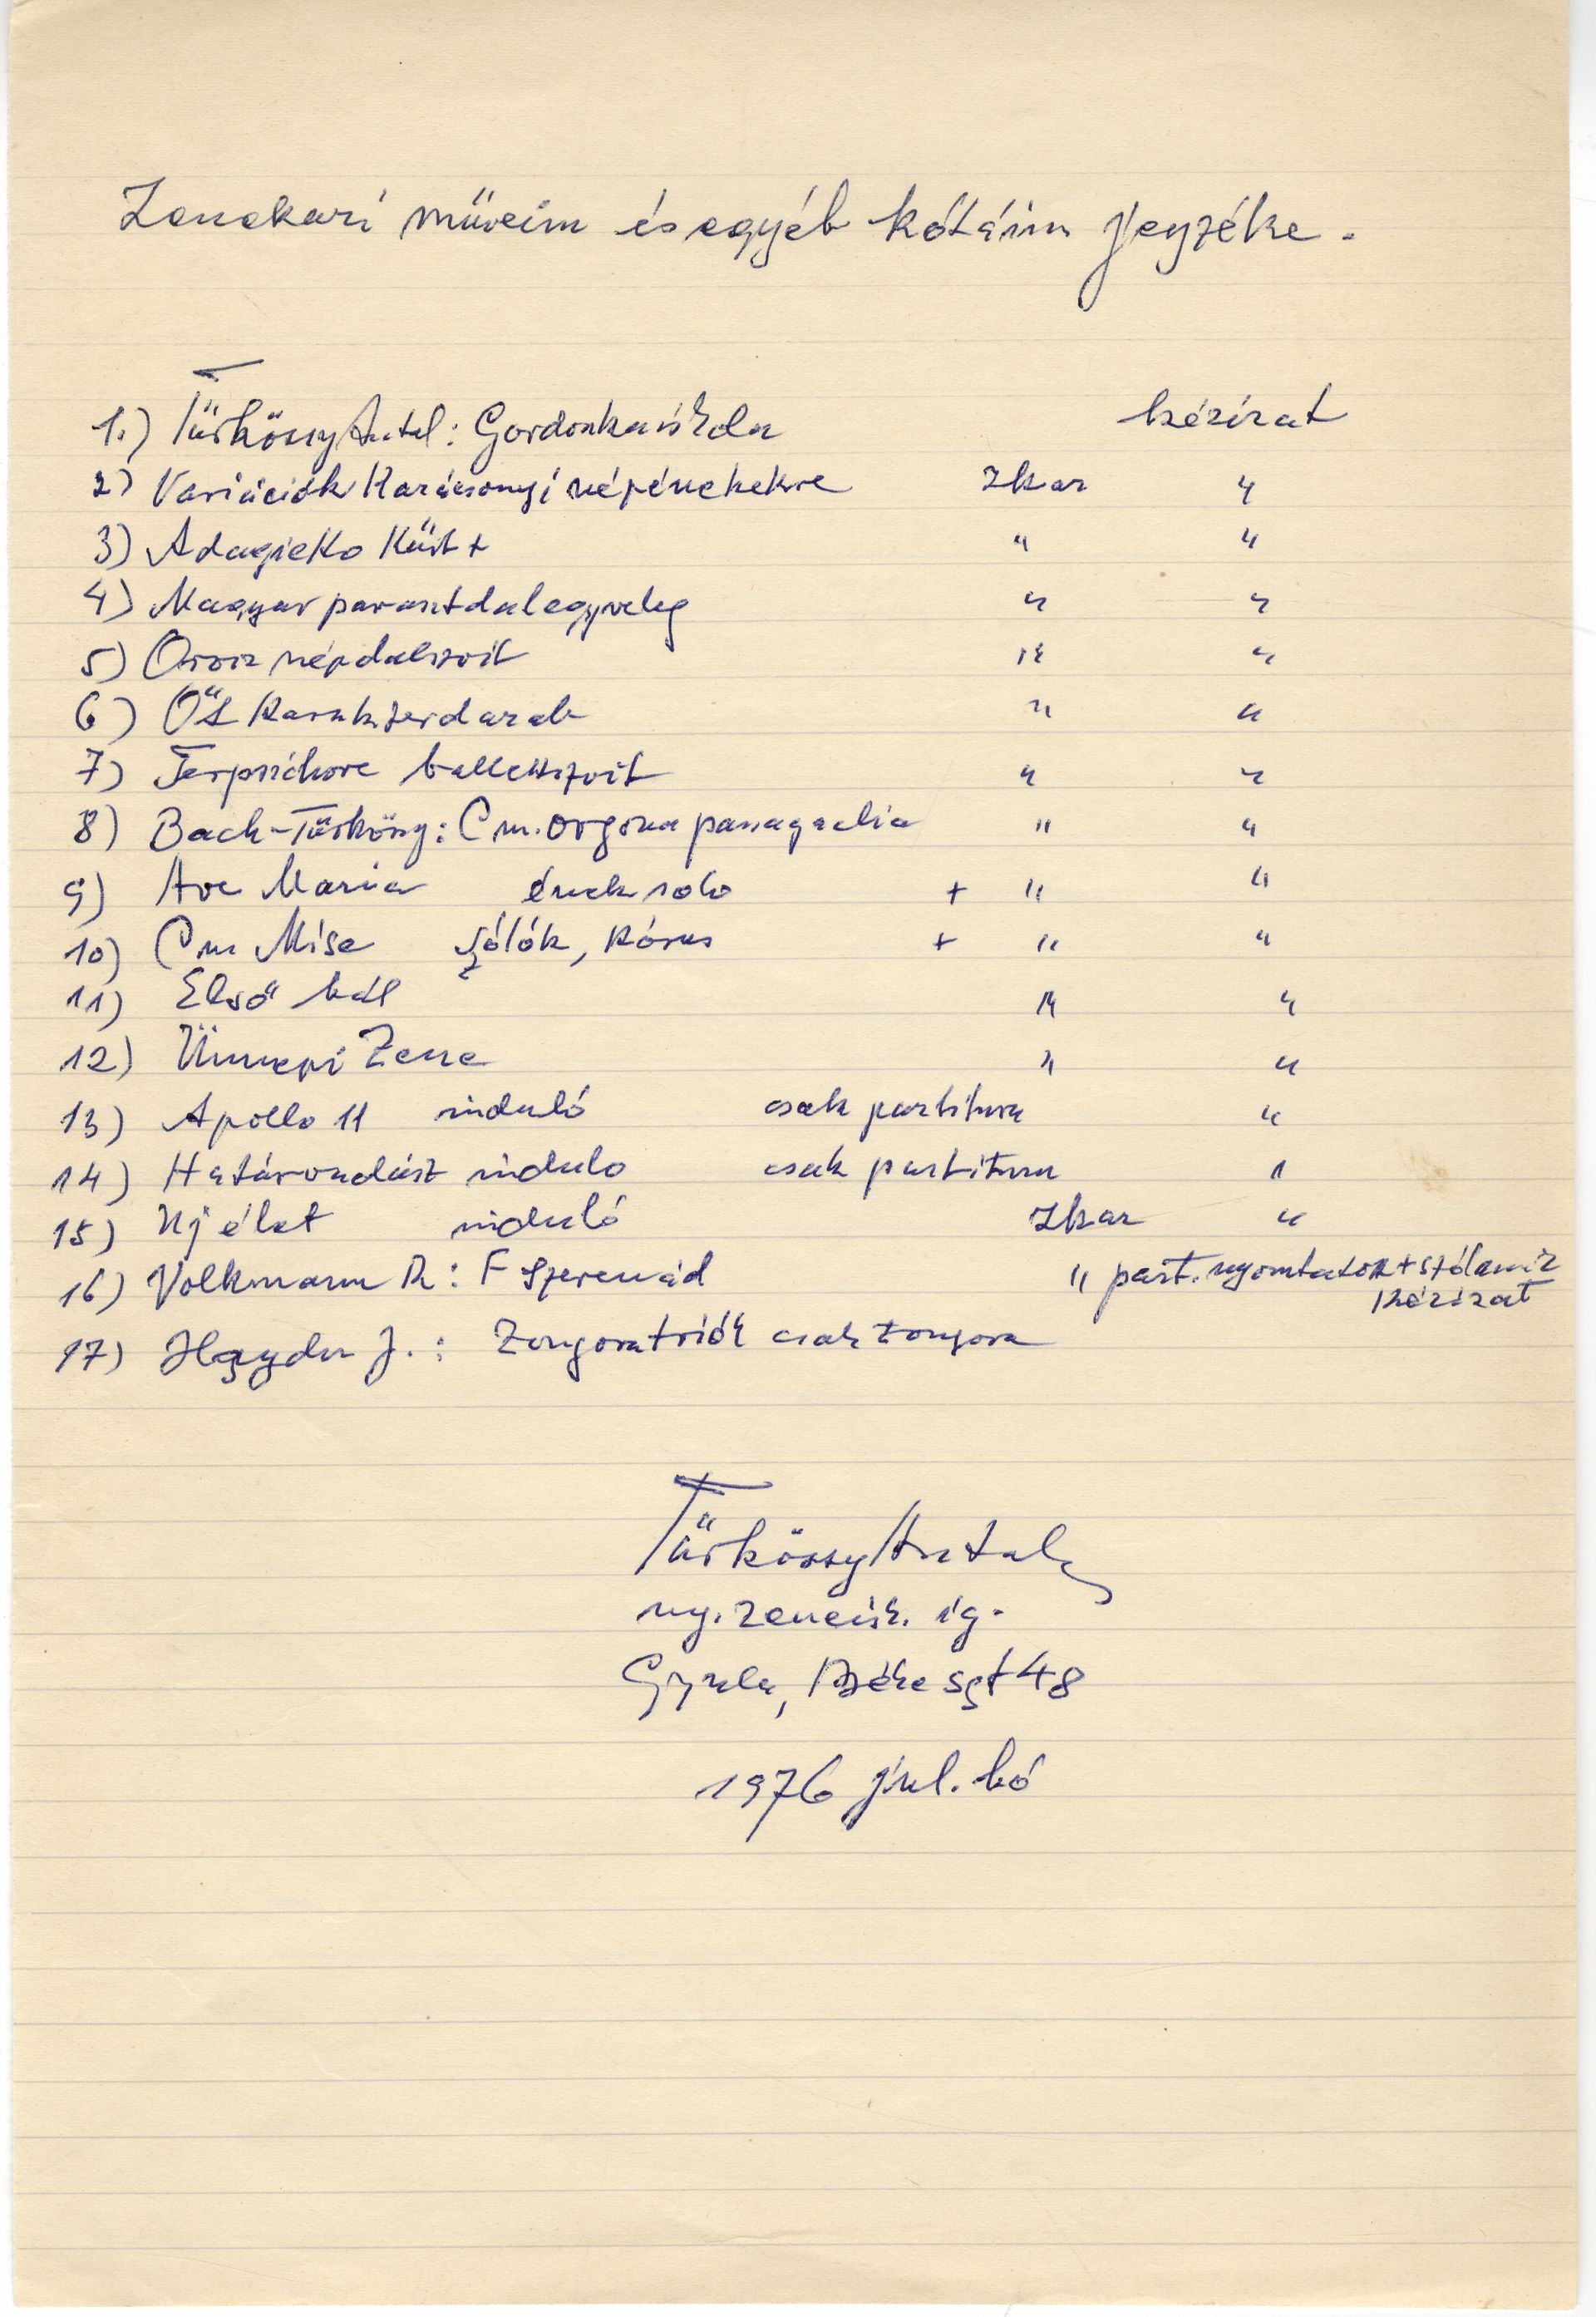 Zenekari műveim és egyéb kótáim jegyzéke.
1.) Türkössy Antal: Gordonkaiskola kézirat
2) Variációk Karácsonyi népénekekre Zkar "
3) Adagietto Kürt + " "
4) Magyar parasztdalegyveleg " "
5) Orosz népdalszvit " "
6) Öt karakterdarab " "
7) Terpsichore balletszvit " "
8) Bach-Türkössy: C m. orgona passacaclia " "
9) Ave Maria ének solo + " "
10) C m Mise szólók, kórus + " "
11) Első bál " "
12) Ünnepi Zene " "
13) Apollo 11 induló csak partitura "
14) Határvadász indulo csak partitura "
15) Uj élet induló Zkar "
16) Volkmann R: F szerenád " part. nyomtatott + szólamok
kézirat
17) Haydn J.: Zongoratriók csak zongora
Türkössy Antal
ny. zeneisk. ig.
Gyula, Béke sgt 48
1976 júl. hó